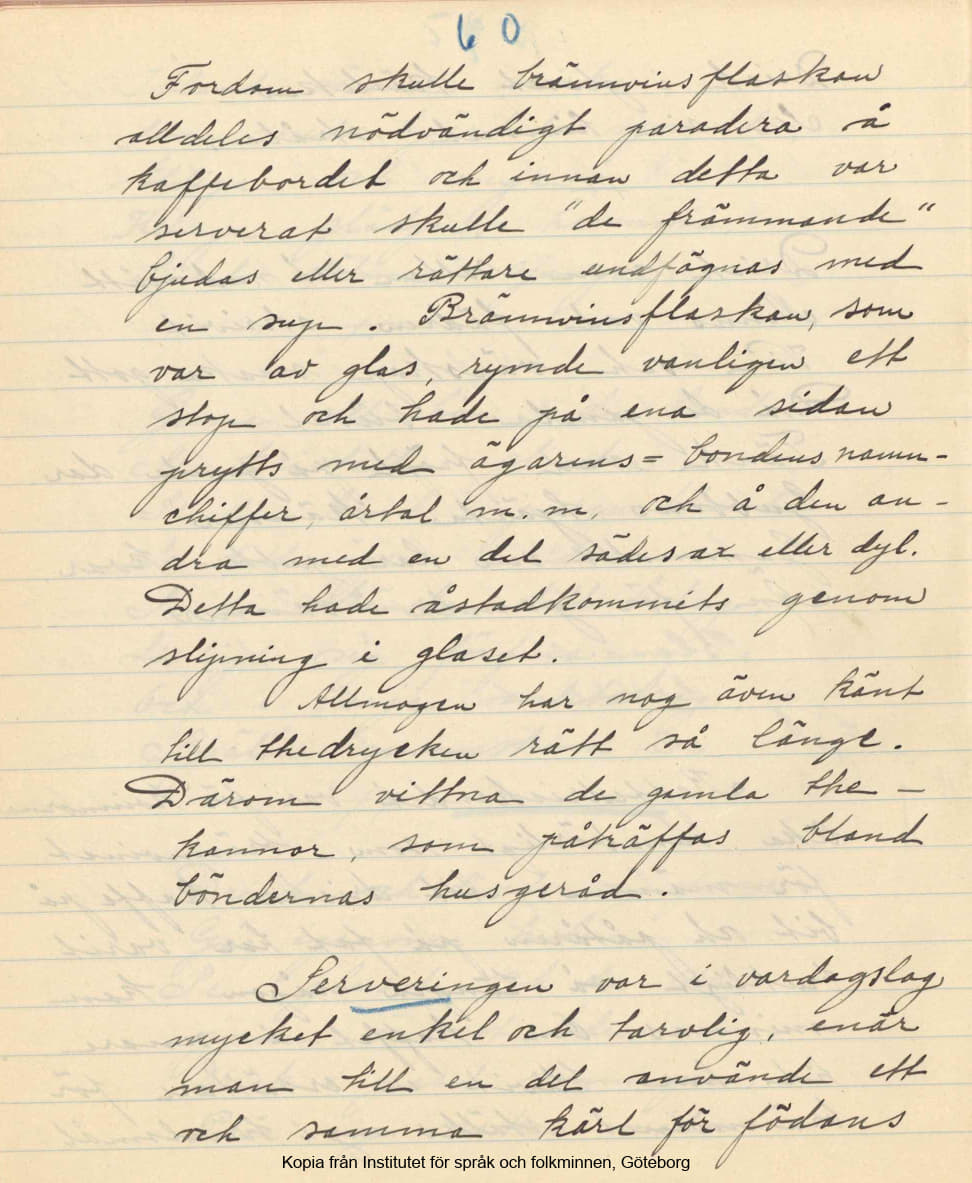 60
Fordom skulle brännvinsflaskan
alldeles nödvändigt paradera å
kaffebordet och innan detta var
serverat skulle "de främmande"
bjudas eller rättare undfägnas med
en sup. Brännvinsflaskan, som
var av glas, rymde vanligen ett
stop och hade på ena sidan
prytts med ägarens= bondens namn-
chiffer, årtal m.m. och å den an-
dra med en del sädesax eller dyl.
Detta hade åstadkommits genom
slipning i glaset.
Allmogen har nog även känt
till thedrycken rätt så länge.
Därom vittna de gamla the-
kannor, som påträffas bland
böndernas husgeråd.
Serveringen var i vardagslag
mycket enkel och tarvlig, enär
man till en del använde ett
och samma kärl för födans
Kopia från Institutet för språk och folkminnen, Göteborg